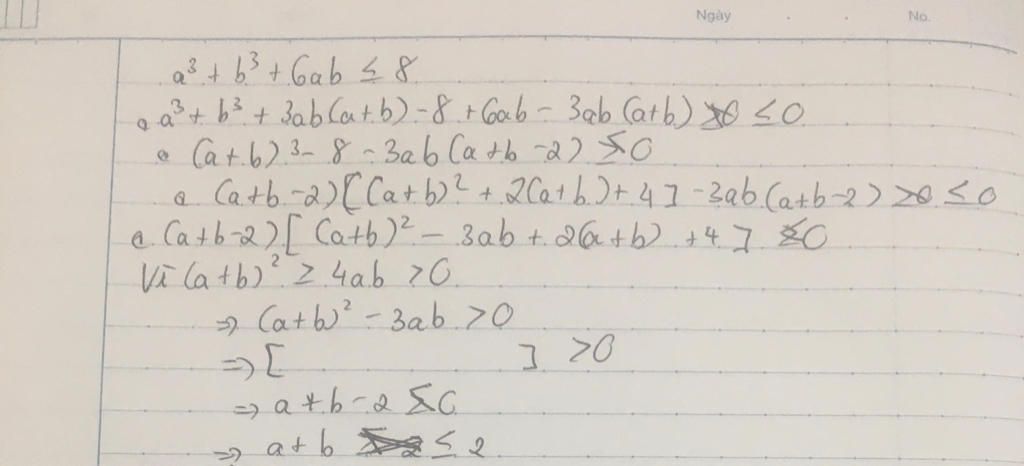 Ngày . . No.
a³ + b³ + 6ab ≤ 8
a³ + b³ + 3ab(a+b) - 8 + 6ab - 3ab(a+b) ≤ 0
(a+b)³ - 8 - 3ab(a+b-2) ≤ 0
(a+b-2)[(a+b)² + 2(a+b)+4] - 3ab(a+b-2) ≤ 0
(a+b-2)[(a+b)² - 3ab + 2(a+b) + 4] ≤ 0
Vì (a+b)² ≥ 4ab > 0
⇒ (a+b)² - 3ab > 0
⇒ [ ] > 0
⇒ a+b-2 ≤ 0
⇒ a+b ≤ 2